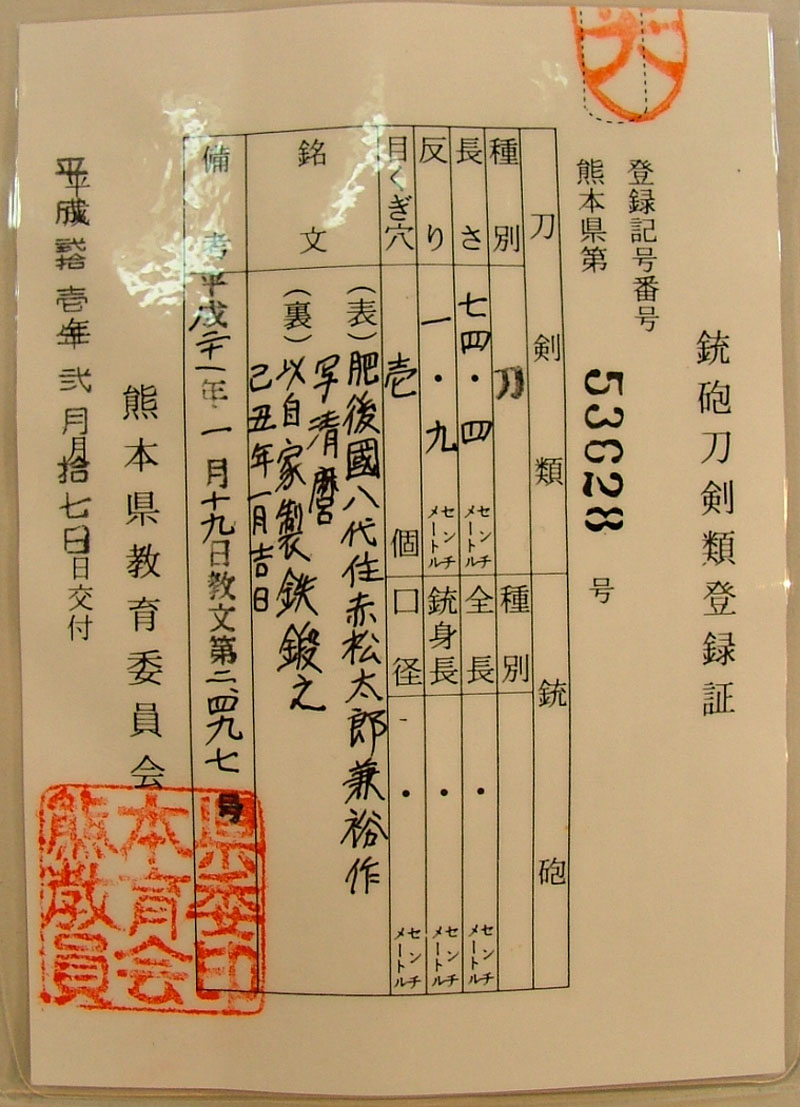 銃砲刀剣類登録証
登録記号番号
熊本県第 53628 号
刀剣類
銃砲
種別 刀
長さ 七四・四 センチメートル
反り 一・九 センチメートル
目くぎ穴 壱 個
種別
全長 ・ センチメートル
銃身長 ・ センチメートル
口径 ・ センチメートル
銘文
(表)肥後國八代住赤松太郎兼裕作
写清麿
(裏)以自家製鉄鍛之
己丑年一月吉日
備考 平成二十一年一月十九日教文第二、四九七号
熊本県教育委員会
平成弐拾壱年弐月拾七日交付
県委印
本育会
熊教員